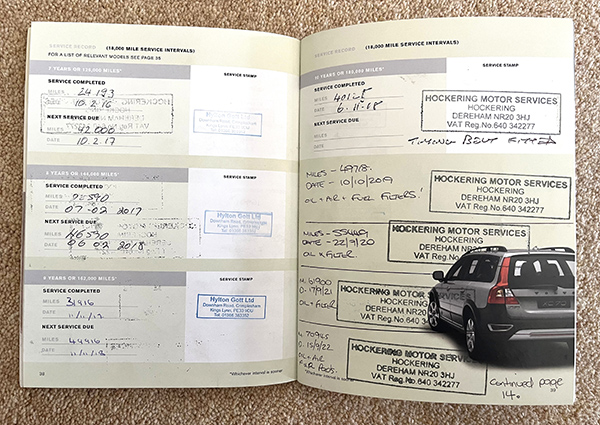 SERVICE RECORD (18,000 MILE SERVICE INTERVALS)
FOR A LIST OF RELEVANT MODELS SEE PAGE 38
7 YEARS OR 126,000 MILES*
SERVICE STAMP
SERVICE COMPLETED
MILES 24 193
DATE 10.2.16
NEXT SERVICE DUE
MILES 42000
DATE 10.2.17
8 YEARS OR 144,000 MILES*
SERVICE STAMP
SERVICE COMPLETED
MILES
DATE 07-02 2017
NEXT SERVICE DUE
MILES 46590
DATE 06 02 2018
Hylton Gott Ltd
9 YEARS OR 162,000 MILES*
SERVICE STAMP
SERVICE COMPLETED
MILES 31916
DATE 11/11/17
NEXT SERVICE DUE
MILES 49916
DATE 11/11/18
Hylton Gott Ltd
Downham Road, Crimplesham,
Kings Lynn, PE33 9DU
*Whichever interval is sooner
SERVICE RECORD (18,000 MILE SERVICE INTERVALS)
10 YEARS OR 180,000 MILES*
SERVICE STAMP
SERVICE COMPLETED
MILES 40125
DATE 6-11-18
NEXT SERVICE DUE
MILES
DATE
HOCKERING MOTOR SERVICES
HOCKERING
DEREHAM NR20 3HJ
VAT Reg.No.640 342277
TIMING BELT FITTED
MILES - 49718.
DATE - 10/10/2019
OIL + AIR + FUEL FILTERS!
HOCKERING MOTOR SERVICES
HOCKERING
DEREHAM NR20 3HJ
VAT Reg.No.640 342277
MILES - 55449
DATE - 22/9/20
OIL + FILTER
HOCKERING MOTOR SERVICES
HOCKERING
DEREHAM NR20 3HJ
M. 61900
D. 17/9/21
OIL + FILTER
HOCKERING MOTOR SERVICES
HOCKERING
DEREHAM NR20
VAT Reg.No.640 3
M. 70945
D. 15/9/22
OIL + AIR
HOCKERING MOTOR SERVICES
HOCKERING
DEREHAM NR20 3HJ
VAT Reg.No.640 342277
*Whichever interval is sooner
continued page
14.
39